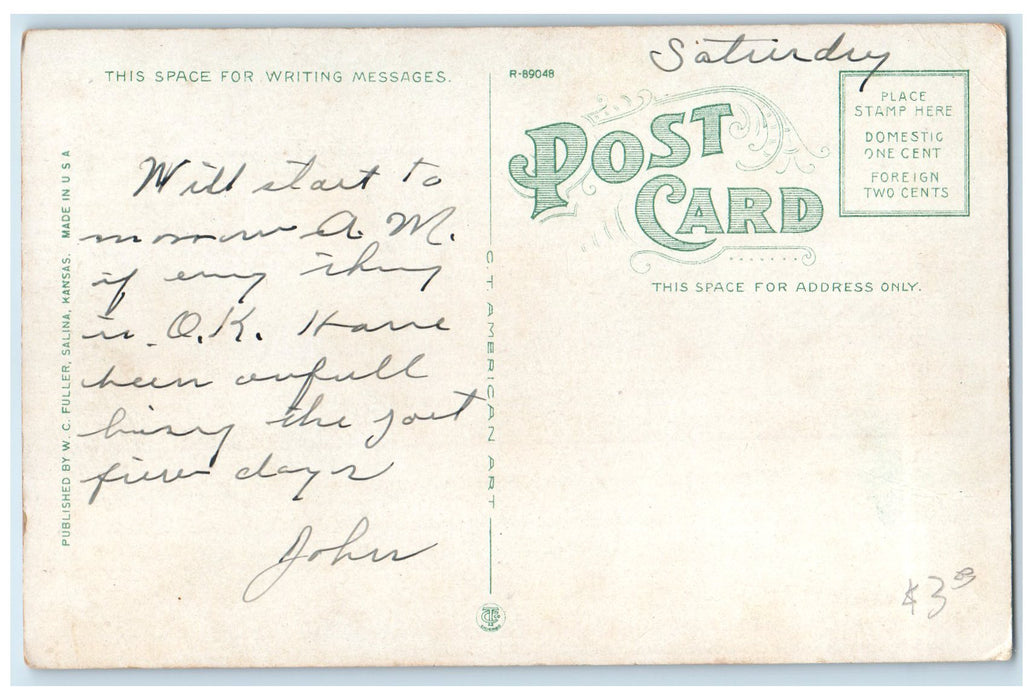 Saturday
THIS SPACE FOR WRITING MESSAGES.
R-89048
POST CARD
PLACE
STAMP HERE
DOMESTIC
ONE CENT
FOREIGN
TWO CENTS
THIS SPACE FOR ADDRESS ONLY.
PUBLISHED BY W. C. FULLER, SALINA, KANSAS. MADE IN USA
Will start to
morrow A. M.
if eny thing
is O.K. Have
been awfull
bussy the past
few days
John
C. T. AMERICAN ART
$3